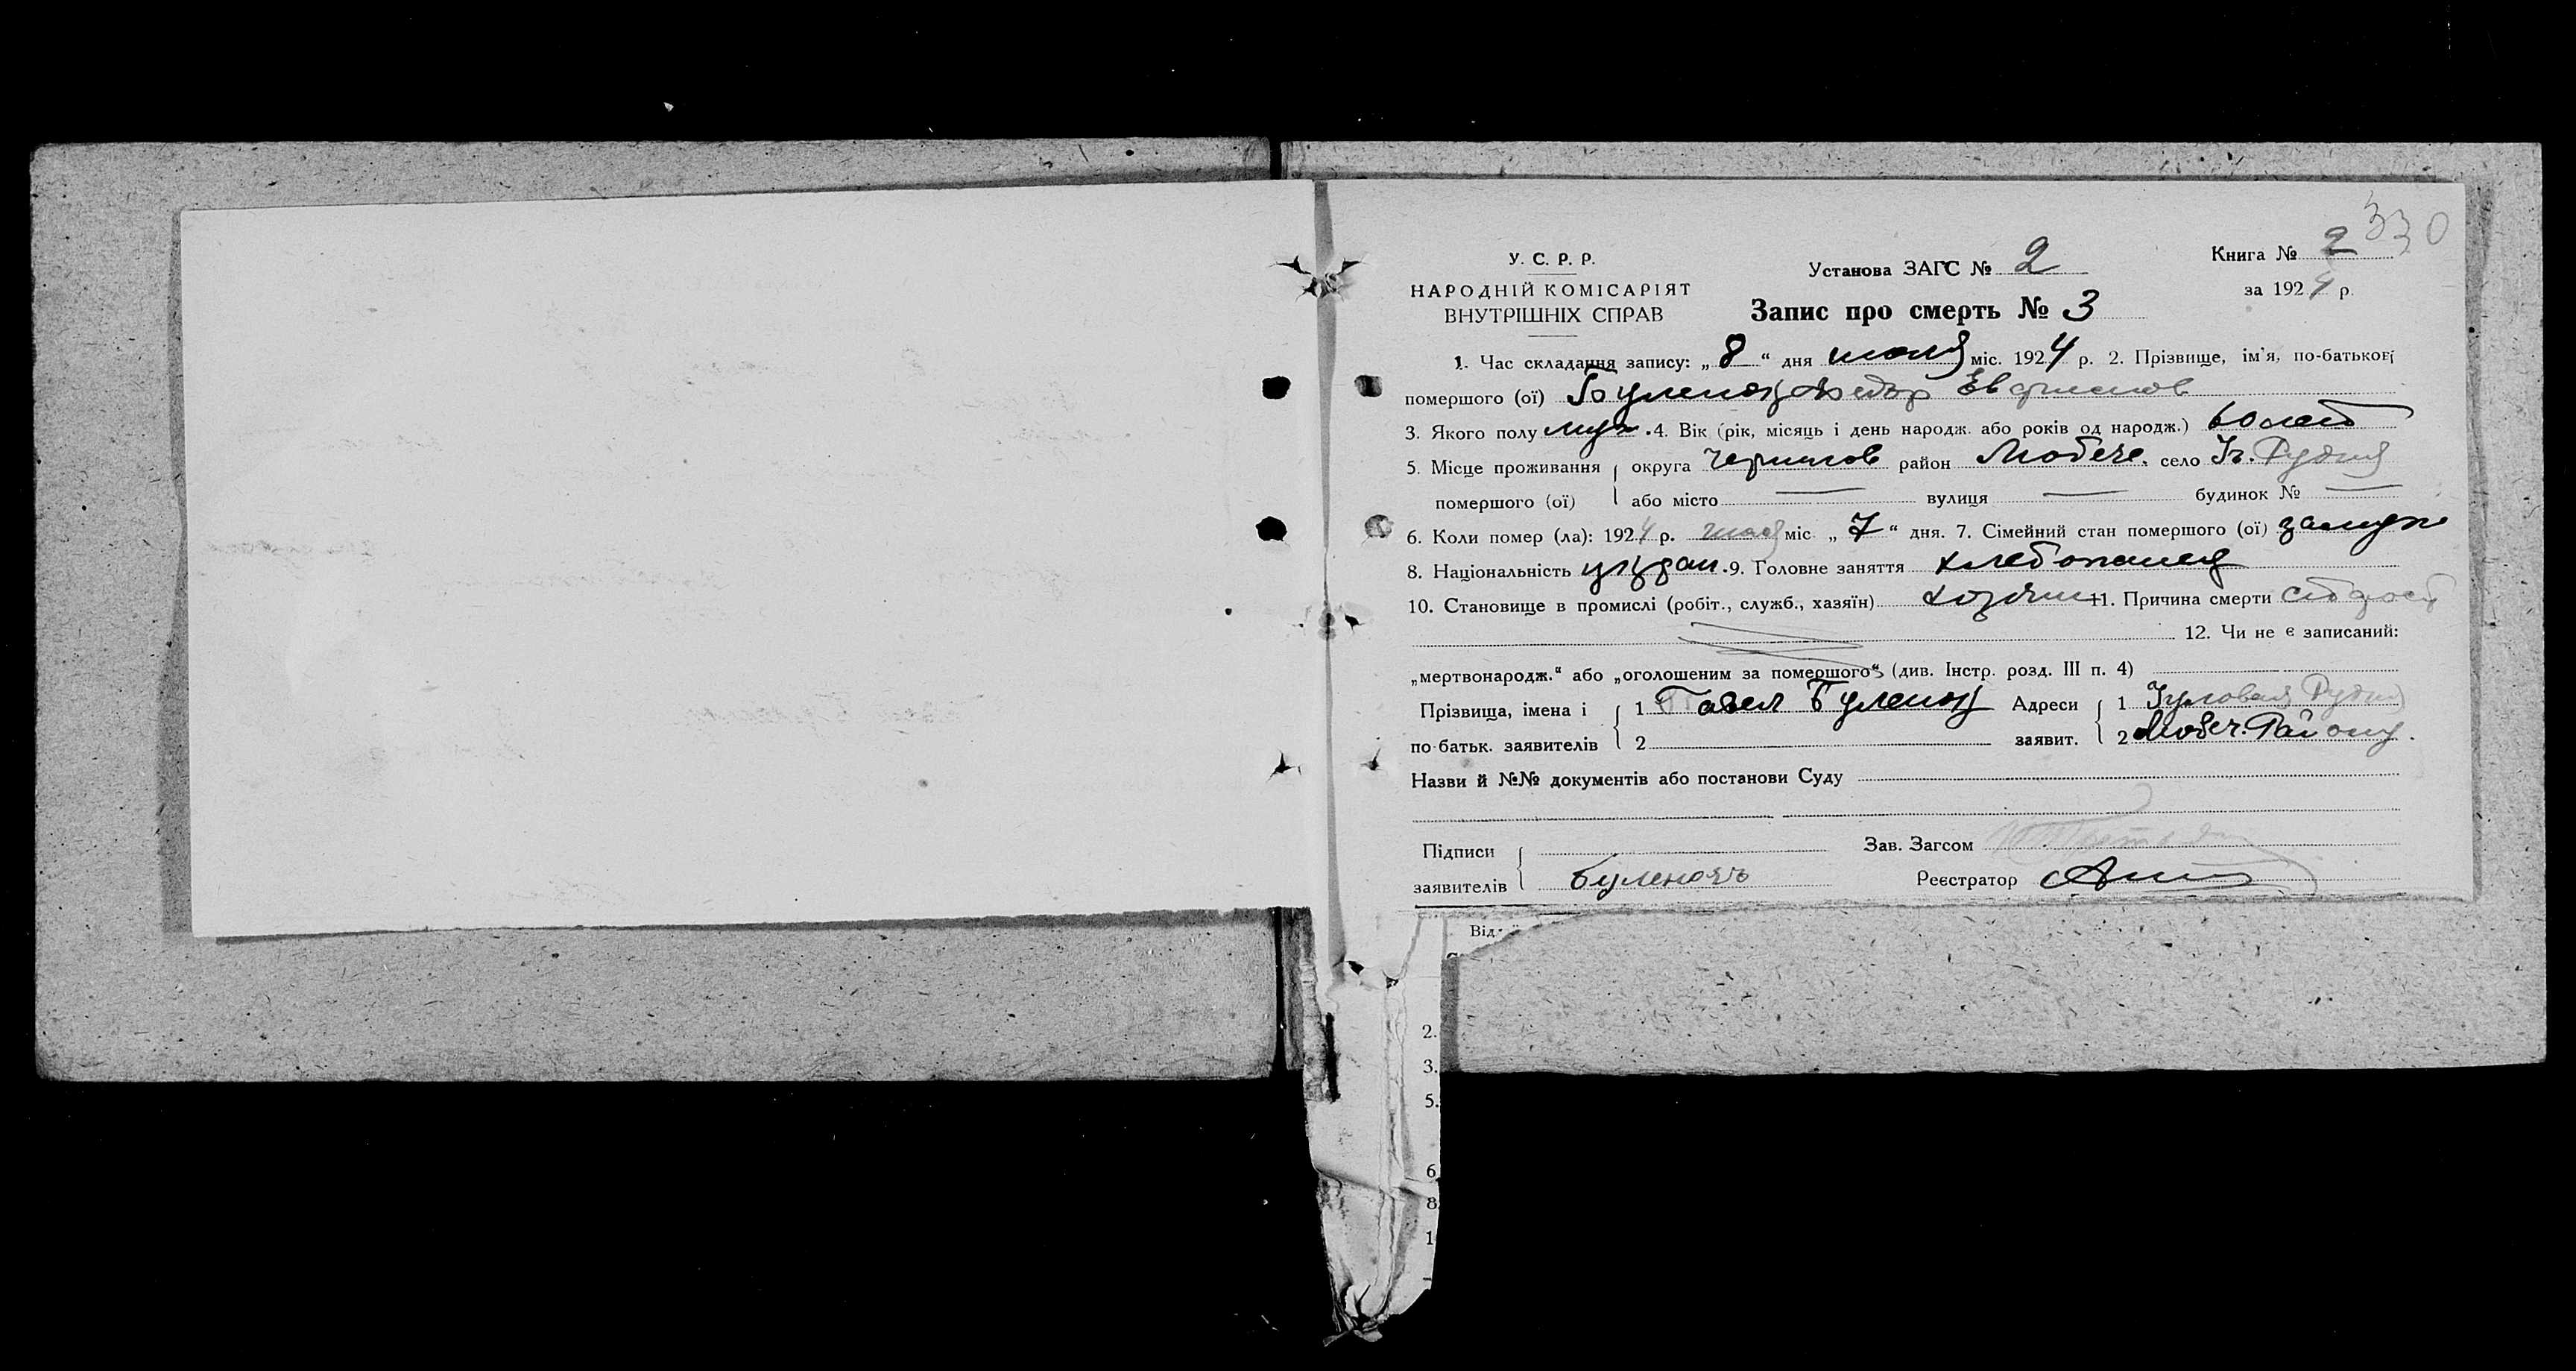 330
У. С. Р. Р.
НАРОДНІЙ КОМІСАРІЯТ
ВНУТРІШНІХ СПРАВ
Установа ЗАГС № 2
Книга № 2
за 1924 р.
Запис про смерть № 3
1. Час складання запису: „ 8 “ дня июля міс. 1924 р. 2. Прізвище, ім'я, по-батькові
помершого (ої) Буленок Федор Евфимов
3. Якого полу муж. 4. Вік (рік, місяць і день народж. або років од народж.) 60 лет
5. Місце проживання округа Чернигов район Любече. село Рудня
помершого (ої) або місто — вулиця — будинок № —
6. Коли помер (ла): 1924 р. июля міс. „ 7 “ дня. 7. Сімейний стан помершого (ої) замуж
8. Національність украи. 9. Головне заняття хлебопашец
10. Становище в промислі (робіт., служб., хазяїн) хозяин 11. Причина смерти старост
12. Чи не є записаний:
„мертвонародж.“ або „оголошеним за помершого“ (див. Інстр. розд. III п. 4)
Прізвища, імена і 1 Павел Буленок Адреси 1 Рудня
по-батьк. заявителів 2 заявит. 2 Любеч. Району.
Назви й №№ документів або постанови Суду
Підписи Зав. Загсом
заявителів Буленокъ Реєстратор
Від.
2.
3.
5.
6
8
1